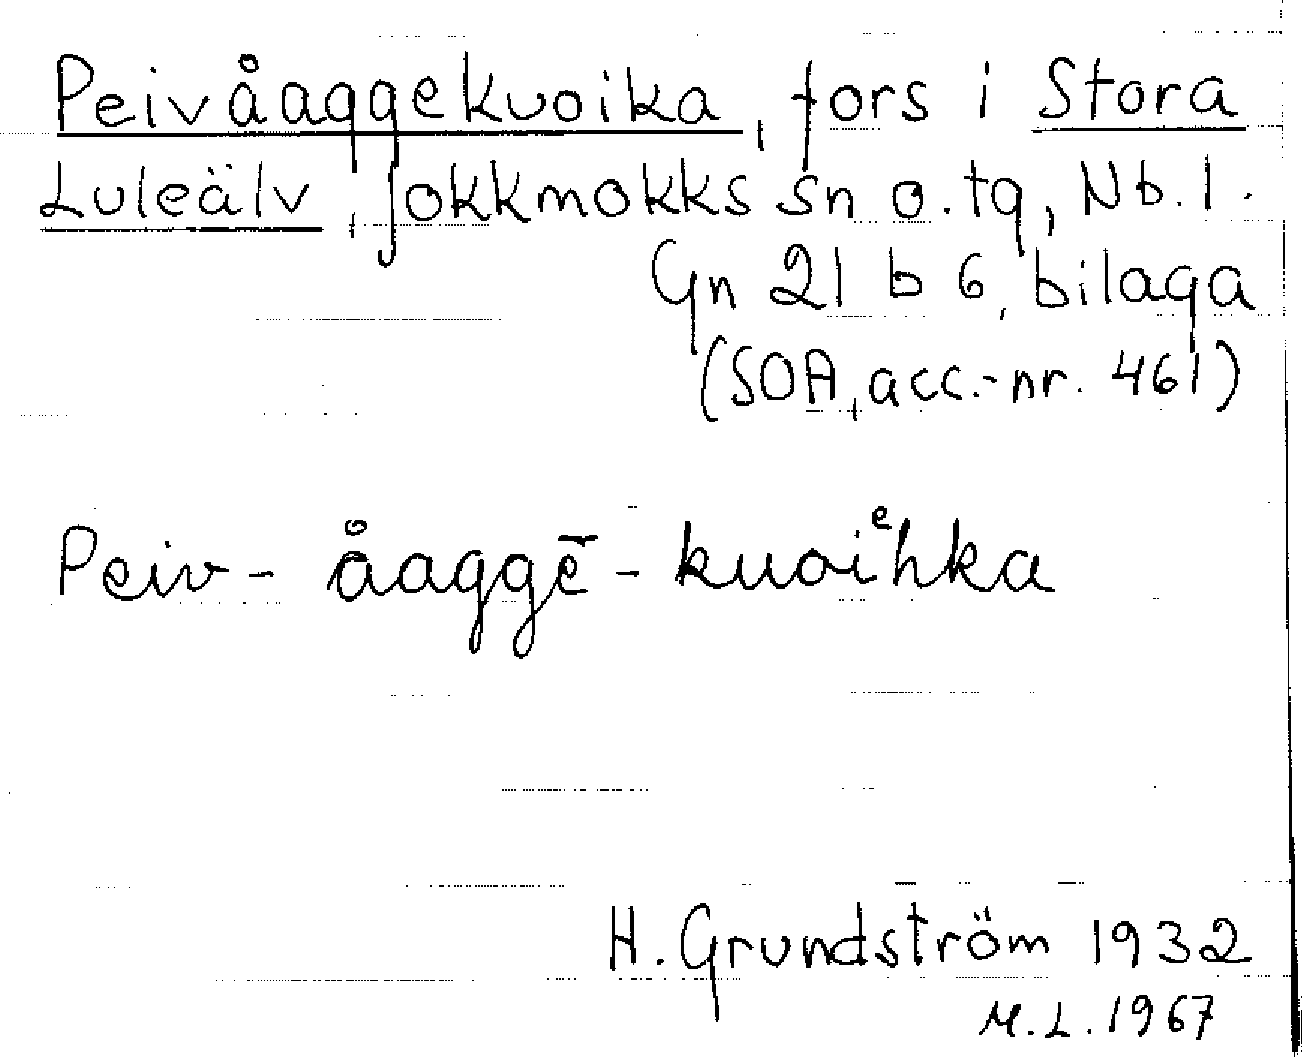 Peivåaggekuoika, fors i Stora
Luleälv, Jokkmokks sn o. tg, Nb. l.
Gn 21 b 6, bilaga
(SOA, acc.-nr. 461)
Peiv- åaggē - kuoiᵉhka
H. Grundström 1932
M. L. 1967